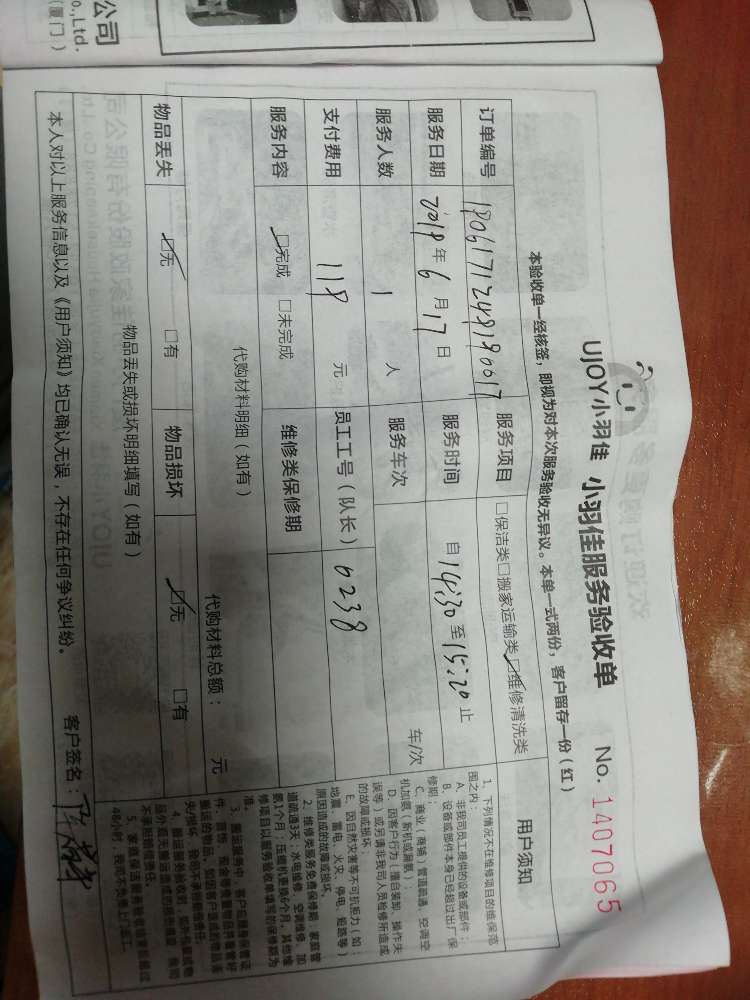 公司
o.,Ltd.
（厦门）
UJOY小羽佳 小羽佳服务验收单
No. 1407065
本验收单一经核签，即视为对本次服务验收无异议。本单一式两份，客户留存一份（红）
订单编号 1806171248190017 服务项目 □保洁类□搬家运输类☑维修清洗类
服务日期 2018年6月17日 服务时间 自14:30至15:20止
服务人数 1 人 服务车次 车/次
支付费用 118 元 员工工号（队长） 6238
服务内容 ☑完成 □未完成 维修类保修期
代购材料明细（如有） 代购材料总额： 元
物品丢失 ☑无 □有 物品损坏 ☑无 □有
物品丢失或损坏明细填写（如有）
本人对以上服务信息以及《用户须知》均已确认无误，不存在任何争议纠纷。
客户签名：
用户须知
1、下列情况不在维修项目的维保范
围之内：
A、非我司员工提供的设备或部件；
B、设备或部件本身已经超过出厂保
修期；
C、商业（商铺）管道疏通、空调空
机加氨（新机或漏氨）；
D、因客户行为（擅自装卸、操作失
误等）或另请非我司人员检修所造成
的故障或损坏
E、因自然灾害等不可抗拒力（如：
地震、雷电、火灾、停电、短路等）
原因造成的故障或损坏。
2、维修类服务免费保修期：家庭管
道疏通3天；水电维修、空调维修、加
氨1个月；压缩机更换6个月，其他维
修项目以服务验收单填写的保修期为
准。
3、搬运服务中，客户应妥善保管证